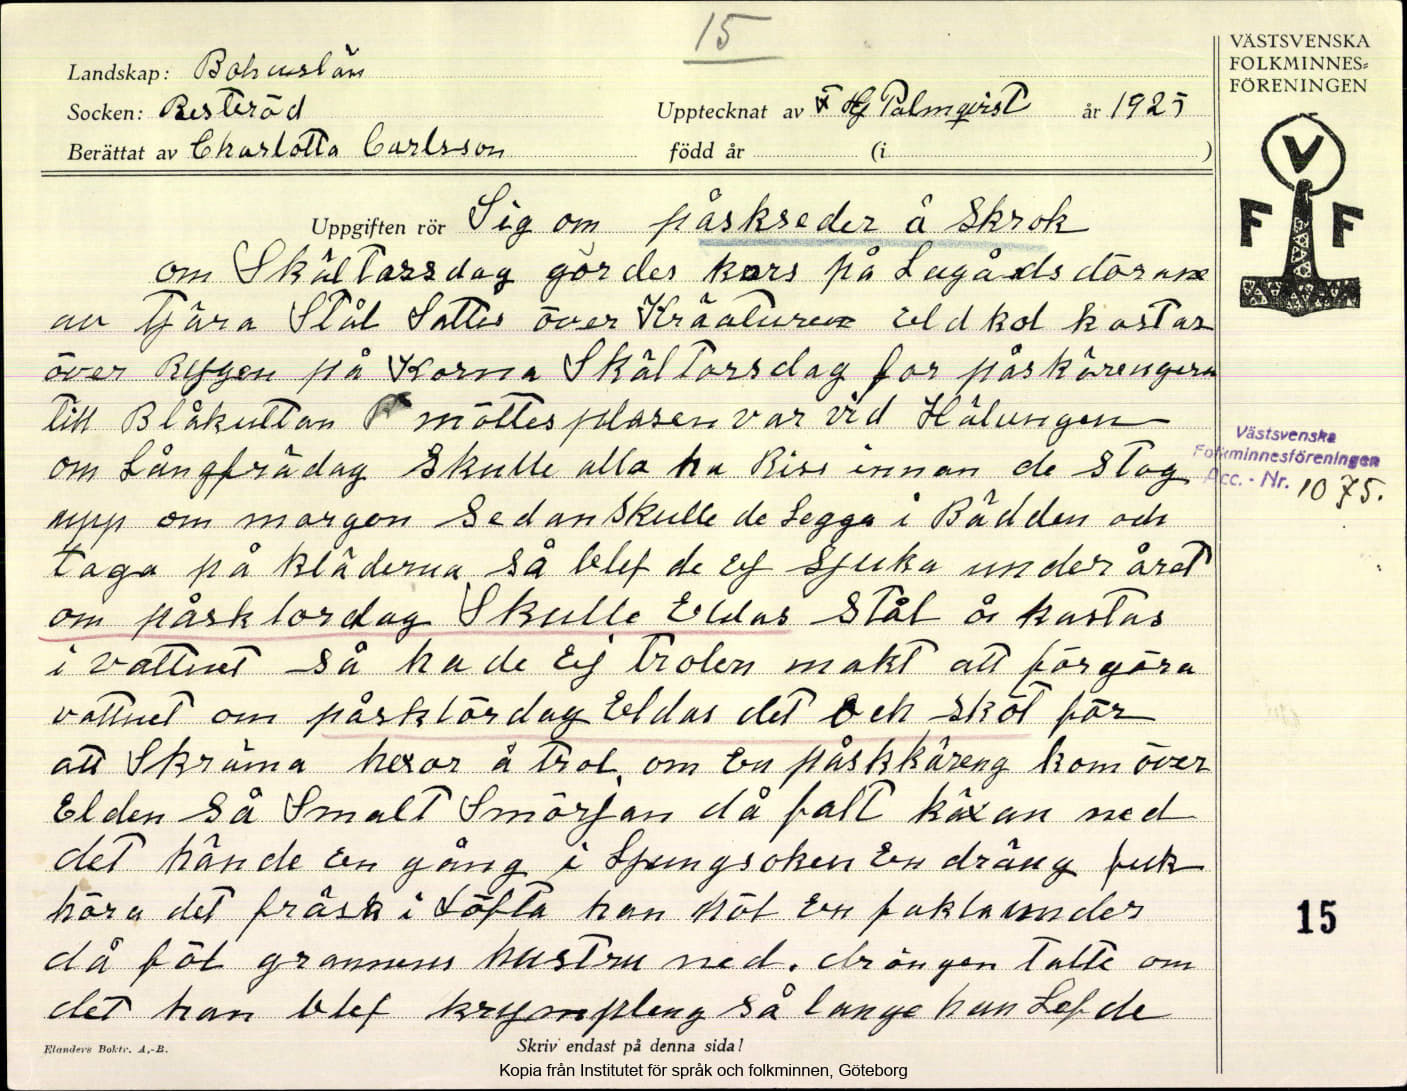 15
VÄSTSVENSKA
FOLKMINNES=
FÖRENINGEN
Landskap: Bohuslän
Socken: Resteröd
Upptecknat av Hj Palmqvist år 1925
Berättat av Charlotta Carlsson
född år (i )
V
F F
Uppgiften rör Sig om påskseder å Skrok
om Skältorsdag gördes kors på Lagårdsdörane
av Tjära Stål Sattes över Kräaturen Eldkol kastas
över Ryggen på Korna Skältorsdag for påskärengern
till Blåkullan möttesplasen var vid Hälungen
om Långfrädag Skulle alla ha Riss innan de Stog
upp om morgon Sedan Skulle de Legga i Bädden och
taga på kläderna Så blef de Ej Sjuka under året
om påsklordag Skulle Eldas Stål å kastas
i vattnet Så hade Eij trolen makt att förgöra
vattnet om påsklördag Eldas det och sköt för
att Skräma hexor å trol. om En påskkäreng kom över
Elden Så Smalt Smörjan då falt käxan ned
det hände En gång i Ljungsoken En dräng fick
höra det fräsa i Löfta han höl En fakla under
då föl grannens hustru ned. drängen talte om
det han blef krympleng Så lange han Lefde
Västsvenska
Folkminnesföreningen
Acc. - Nr. 1075.
15
Elanders Boktr. A,-B.
Skriv endast på denna sida!
Kopia från Institutet för språk och folkminnen, Göteborg